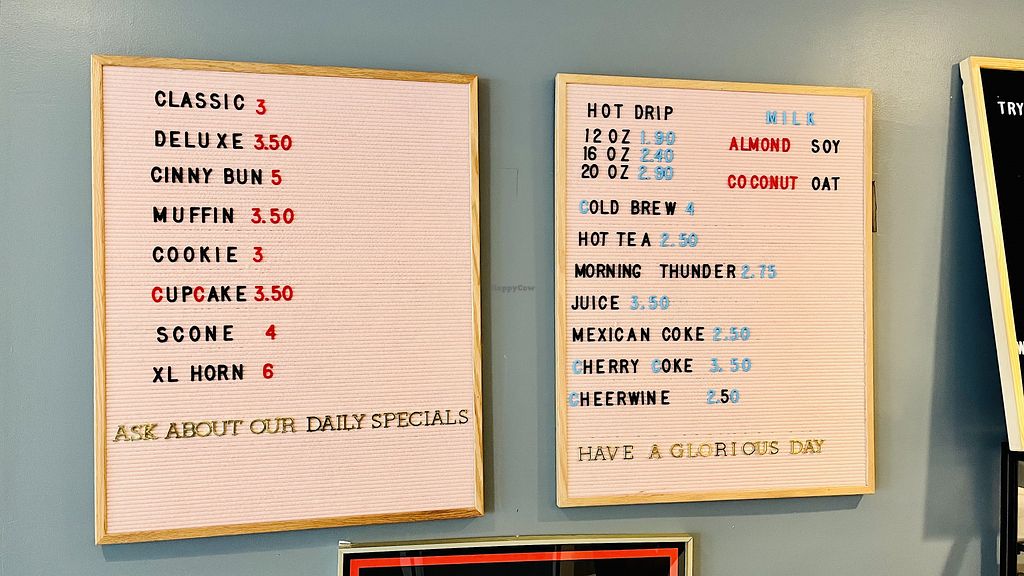 CLASSIC 3
DELUXE 3.50
CINNY BUN 5
MUFFIN 3.50
COOKIE 3
CUPCAKE 3.50
SCONE 4
XL HORN 6
ASK ABOUT OUR DAILY SPECIALS
HOT DRIP
12 OZ 1.90
16 OZ 2.40
20 OZ 2.90
MILK
ALMOND SOY
COCONUT OAT
COLD BREW 4
HOT TEA 2.50
MORNING THUNDER 2.75
JUICE 3.50
MEXICAN COKE 2.50
CHERRY COKE 3.50
CHEERWINE 2.50
HAVE A GLORIOUS DAY
TRY
HappyCow